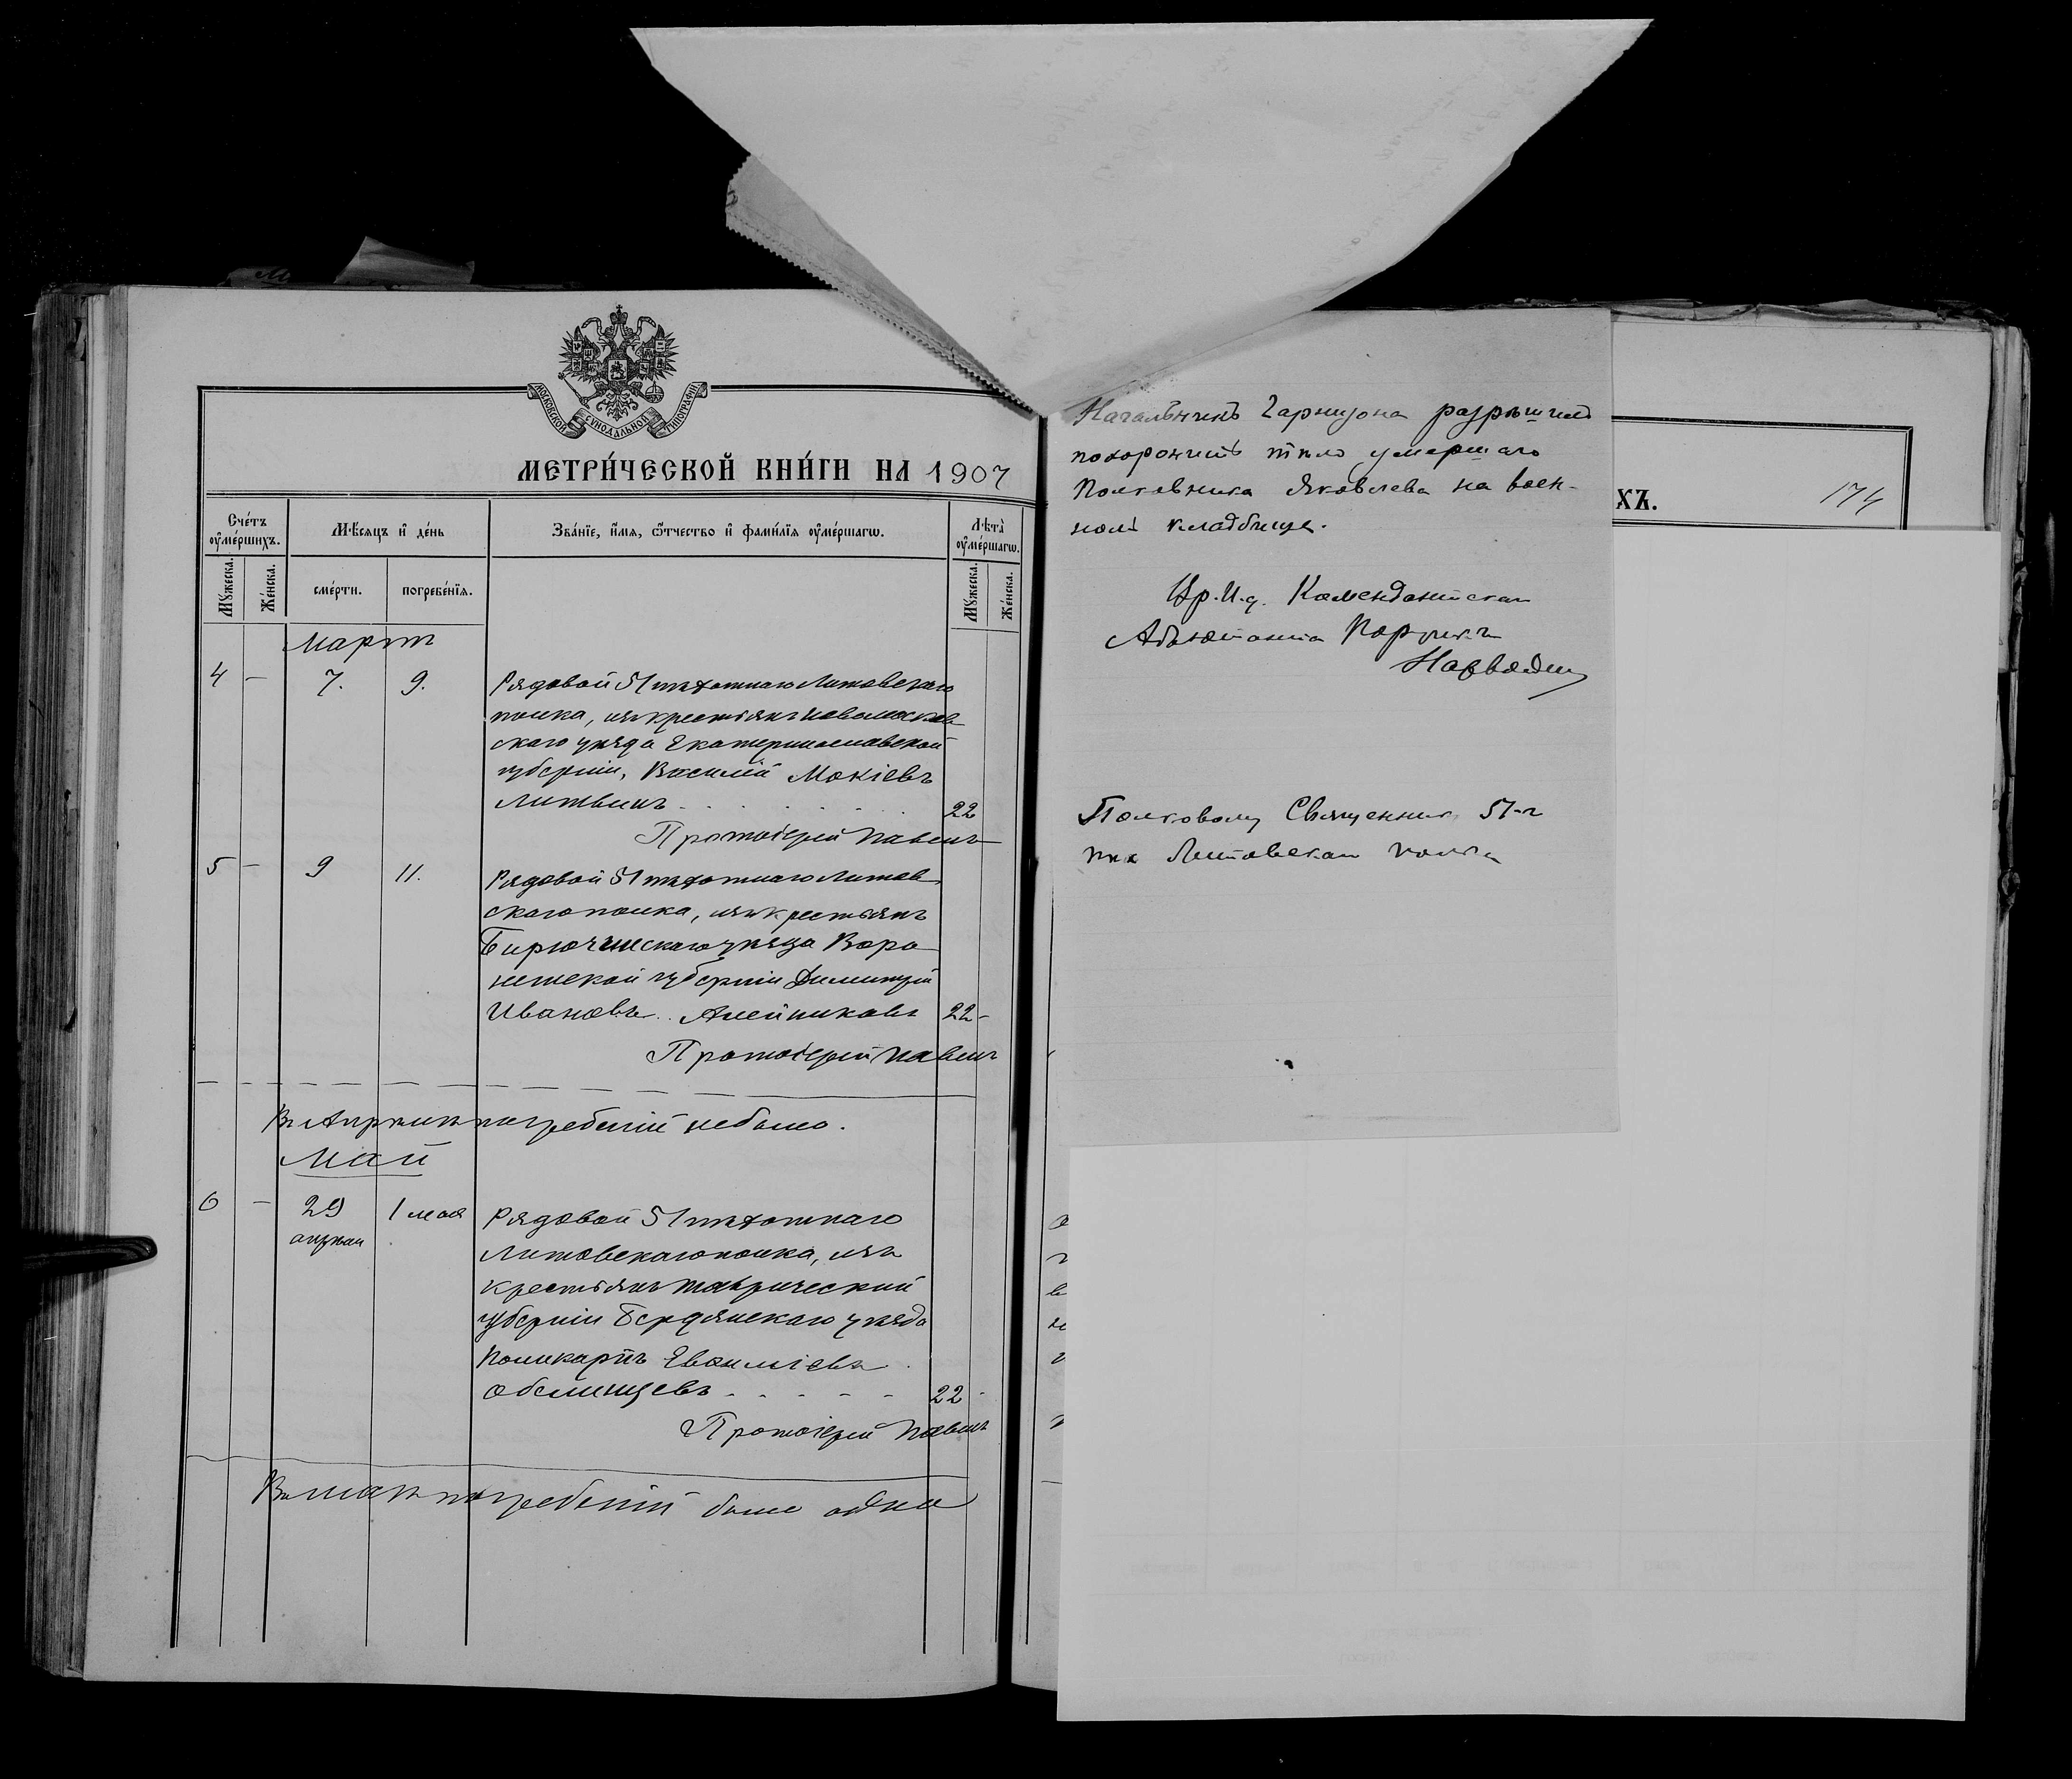 МОСКОВСКОЙ СѴНОДАЛЬНОЙ ТИПОГРАФІИ
МЕТРИ́ЧЕСКОЙ КНИ́ГИ НА 1907
Сче́тъ оу҆ме́ршихъ.
Мѣ́сяцъ и҆ де́нь
Зва́нїе, и҆́мѧ, ѻ҆́тчество и҆ фами́лїѧ оу҆ме́ршагѡ.
Лѣта̀ оу҆ме́ршагѡ.
Мꙋ́жеска.
Же́нска.
сме́рти.
погребе́нїѧ.
Мꙋ́жеска.
Же́нска.
Мартъ
4 – 7. 9. Рядовой 51 пѣхотнаго Литовскаго
полка, изъ крестьянъ Новомосков
скаго уѣзда Екатеринославской
губерніи, Василій Мокіевъ
Литвинъ . . . . . . 22
Протоіерей Павелъ
5 – 9 11. Рядовой 51 пѣхотнаго Литов
скаго полка, изъ крестьянъ
Бирюченскаго уѣзда Воро
нежской губерніи Димитрій
Ивановъ Алейниковъ 22 –
Протоіерей Павелъ
Въ Апрѣлѣ погребеній не было.
Май
6 – 29 апрѣля 1 мая Рядовой 51 пѣхотнаго
Литовскаго полка, изъ
крестьянъ Таврической
губерніи Бердянскаго уѣзда
Поликарпъ
– – – – – 22 -
Протоіерей Павелъ
Въ маѣ погребеній было одно
ХЪ.
174
Начальникъ Гарнизона разрѣшилъ
похоронить тѣло умершаго
Полковника Яковлева на воен-
номъ кладбище.
Вр. И. д. Комендантскаго
Адъютанта Поручикъ
Полковому Священнику 51-г
пѣх Литовскаго полка